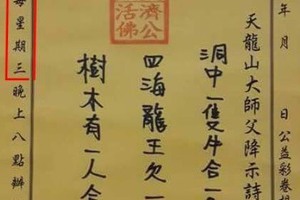 年　月　日公益彩卷根
天龍山大師父降示詩
洞中一隻牛合一
四海龍王欠一
樹木有一人合
濟公活佛
每星期三晚上八點辦